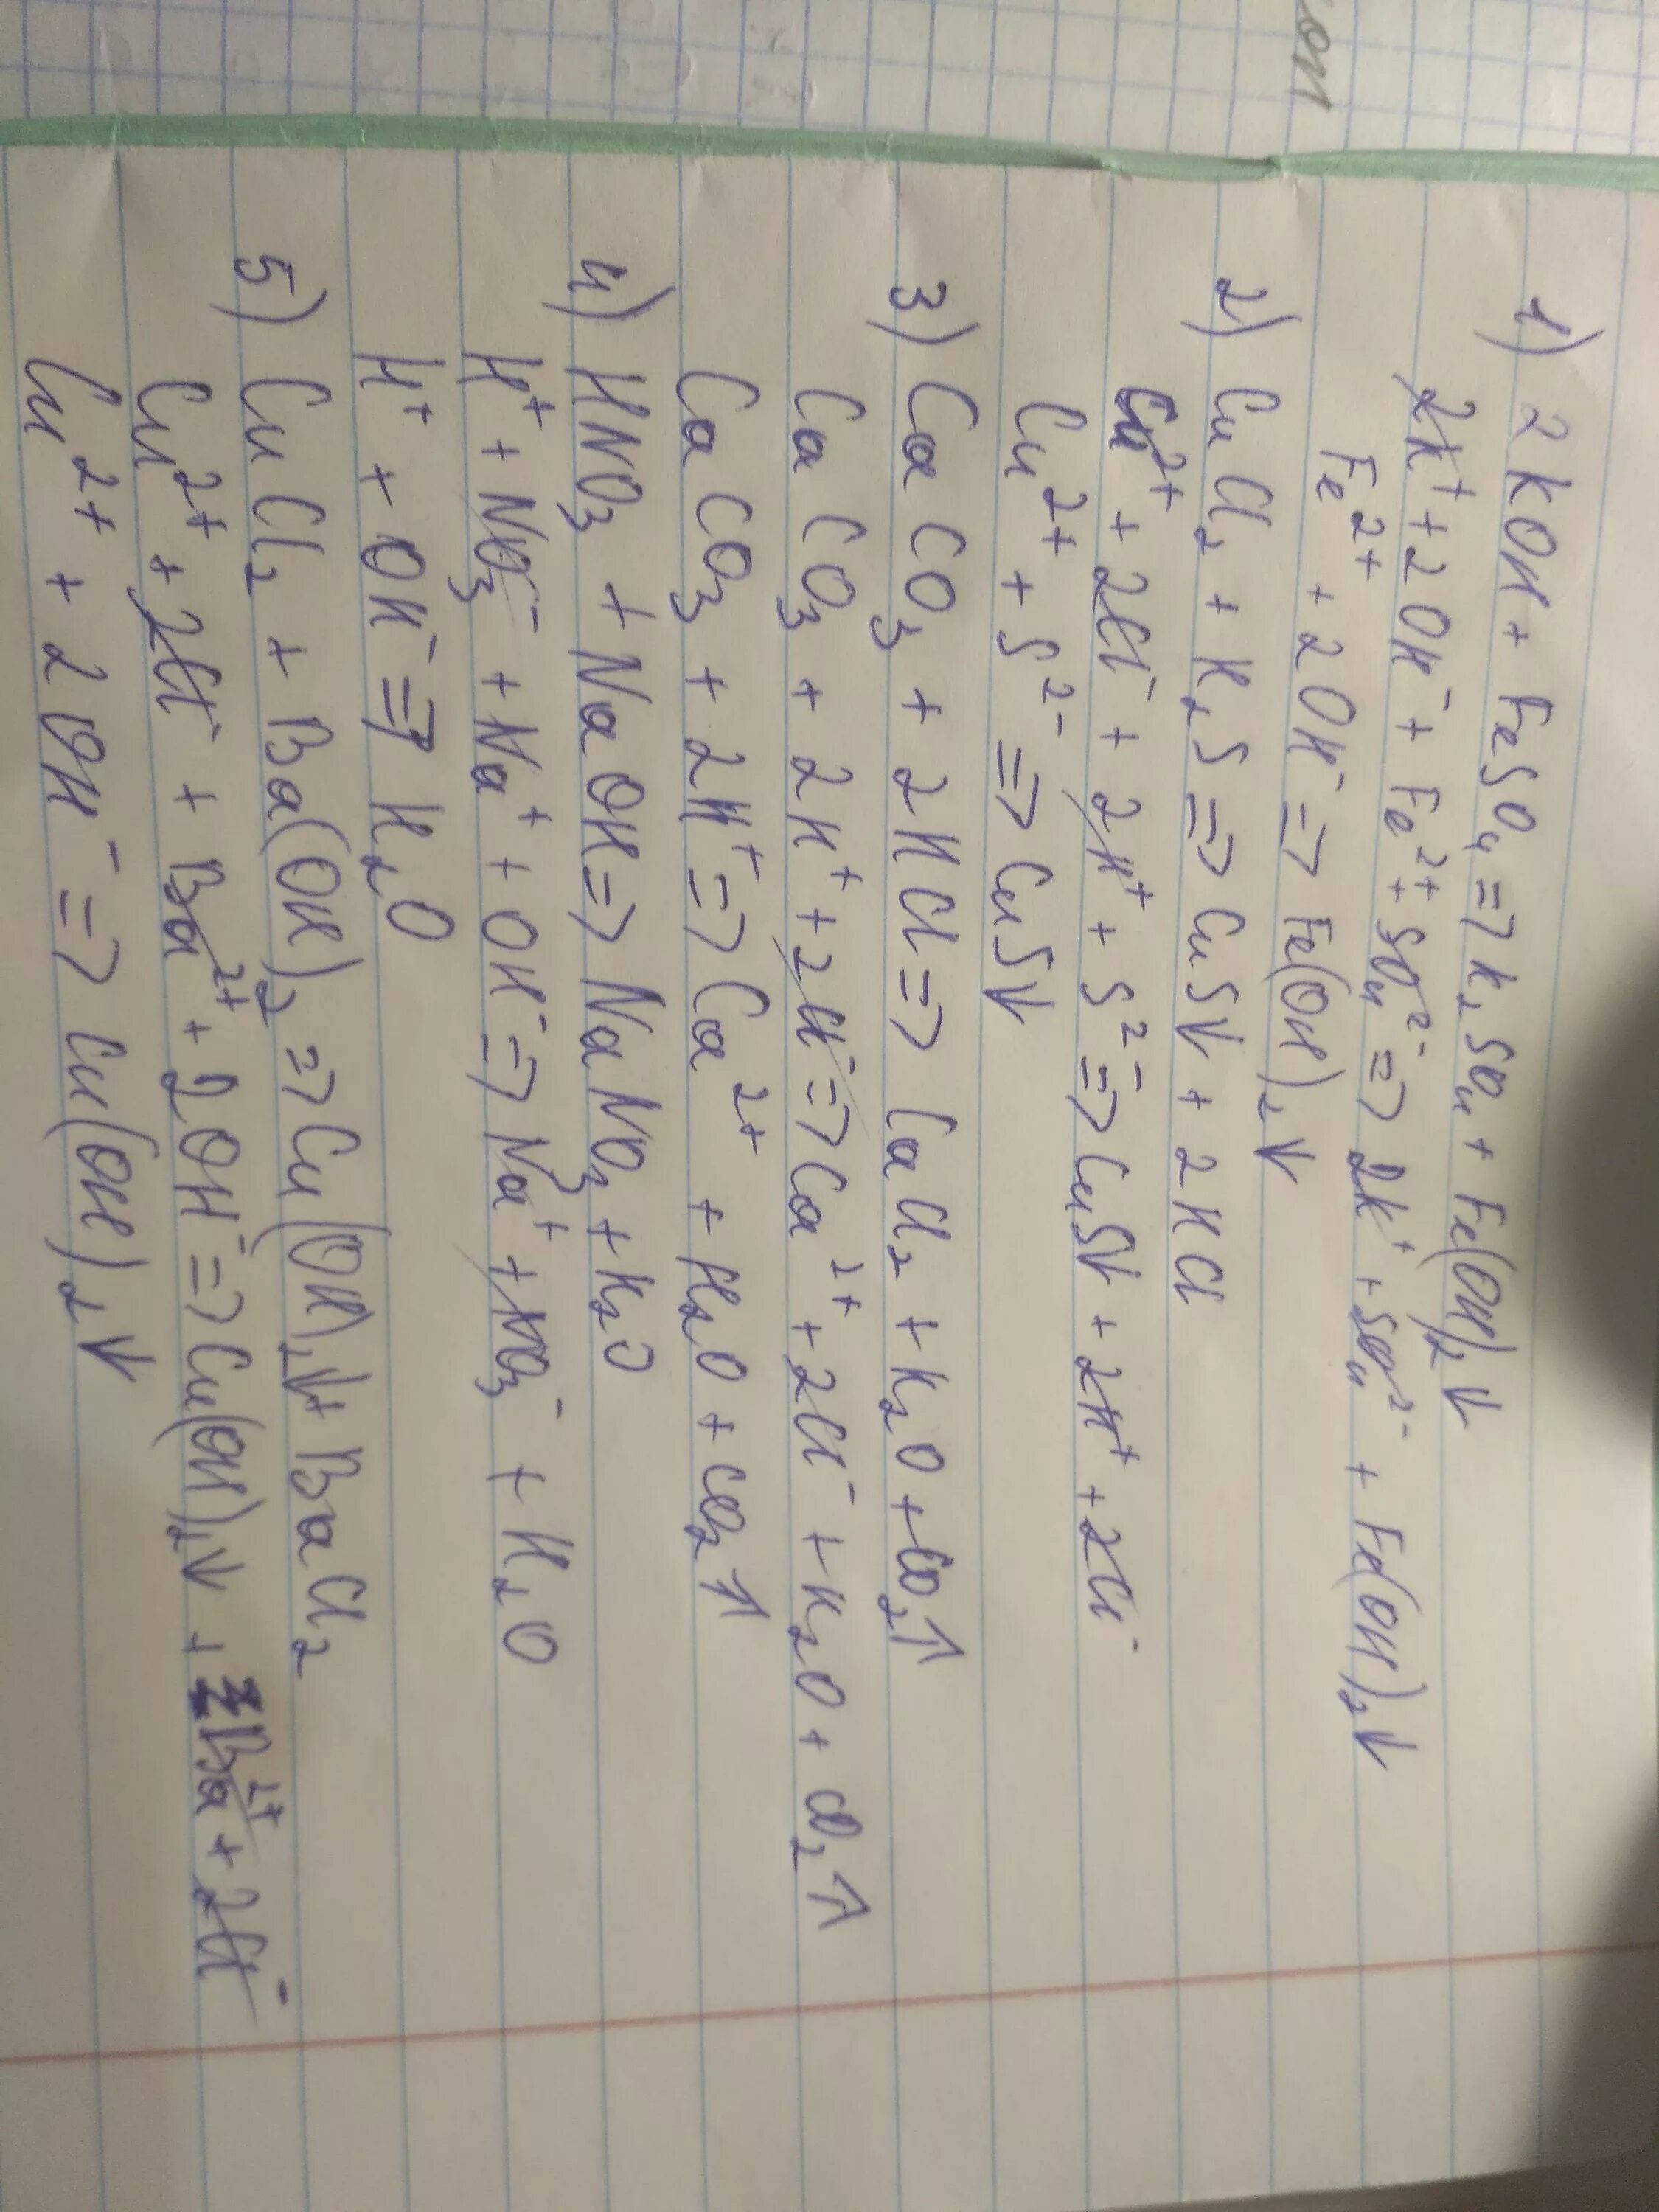 1) 2KOH + FeSO₄ => K₂SO₄ + Fe(OH)₂↓
2K⁺ + 2OH⁻ + Fe²⁺ + SO₄²⁻ => 2K⁺ + SO₄²⁻ + Fe(OH)₂↓
Fe²⁺ + 2OH⁻ => Fe(OH)₂↓
2) CuCl₂ + H₂S => CuS↓ + 2HCl
Cu²⁺ + 2Cl⁻ + 2H⁺ + S²⁻ => CuS↓ + 2H⁺ + 2Cl⁻
Cu²⁺ + S²⁻ => CuS↓
3) CaCO₃ + 2HCl => CaCl₂ + H₂O + CO₂↑
CaCO₃ + 2H⁺ + 2Cl⁻ => Ca²⁺ + 2Cl⁻ + H₂O + CO₂↑
CaCO₃ + 2H⁺ => Ca²⁺ + H₂O + CO₂↑
4) HNO₃ + NaOH => NaNO₃ + H₂O
H⁺ + NO₃⁻ + Na⁺ + OH⁻ => Na⁺ + NO₃⁻ + H₂O
H⁺ + OH⁻ => H₂O
5) CuCl₂ + Ba(OH)₂ => Cu(OH)₂↓ + BaCl₂
Cu²⁺ + 2Cl⁻ + Ba²⁺ + 2OH⁻ => Cu(OH)₂↓ + Ba²⁺ + 2Cl⁻
Cu²⁺ + 2OH⁻ => Cu(OH)₂↓